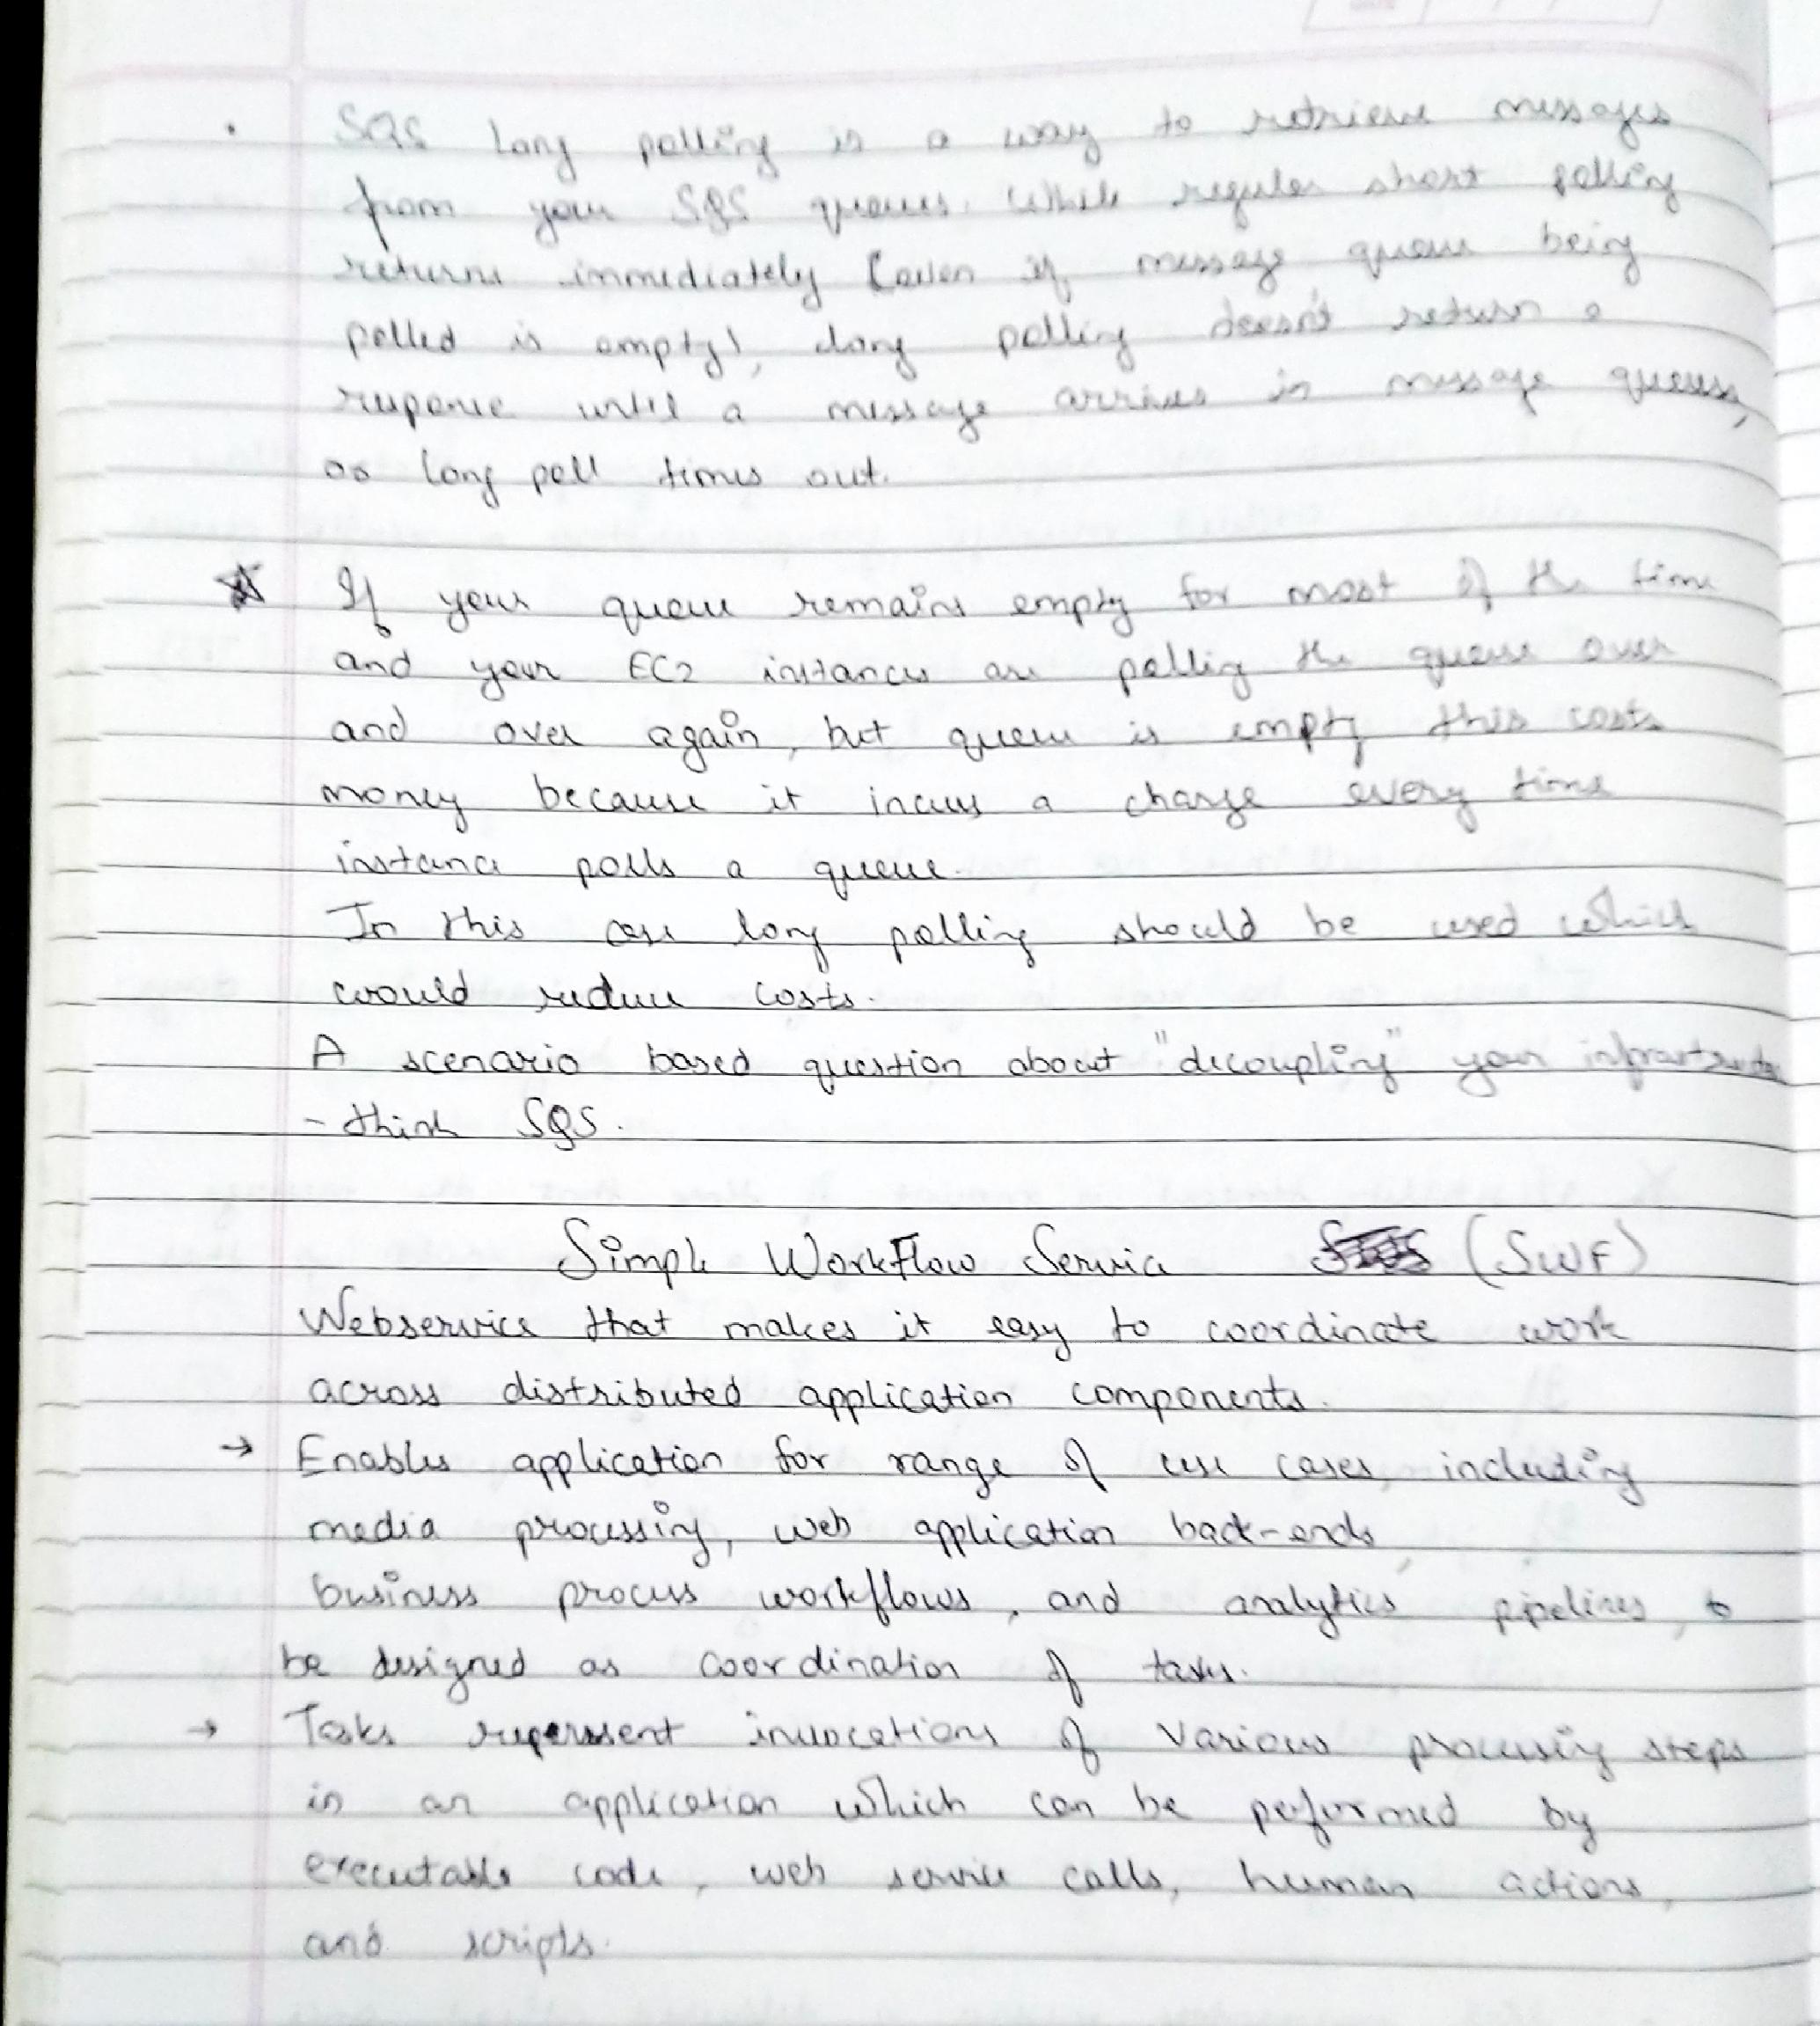 • SQS long polling is a way to retrieve messages
from your SQS queues. While regular short polling
returns immediately (even if message queue being
polled is empty), long polling doesn't return a
response until a message arrives in message queue,
or long poll times out.
☆ If your queue remains empty for most of the time
and your EC2 instances are polling the queue over
and over again, but queue is empty this costs
money because it incurs a charge every time
instance polls a queue.
In this case long polling should be used which
would reduce costs.
A scenario based question about "decoupling" your
- think SQS.
Simple WorkFlow Service (SWF)
Webservice that makes it easy to coordinate work
across distributed application components.
→ Enables application for range of use cases, including
media processing, web application back-ends,
business process workflows, and analytics pipelines, to
be designed as coordination of tasks.
→ Tasks reperesent invocations of various processing steps
in an application which can be performed by
executable code, web service calls, human actions,
and scripts.